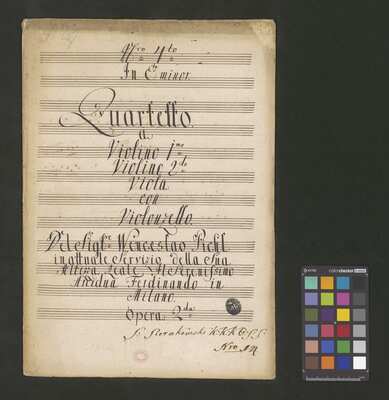 Nro 4to
In C minor
Quartetto
a
Violino 1mo
Violino 2do
Viola
con
Violonzello.
Del Sigre Wenceslao Pichl
in attuale Servizio della Sua
Altezza Reale il Serenissimo
Arcidua Ferdinando in
Milano.
Opera 2da
Nro